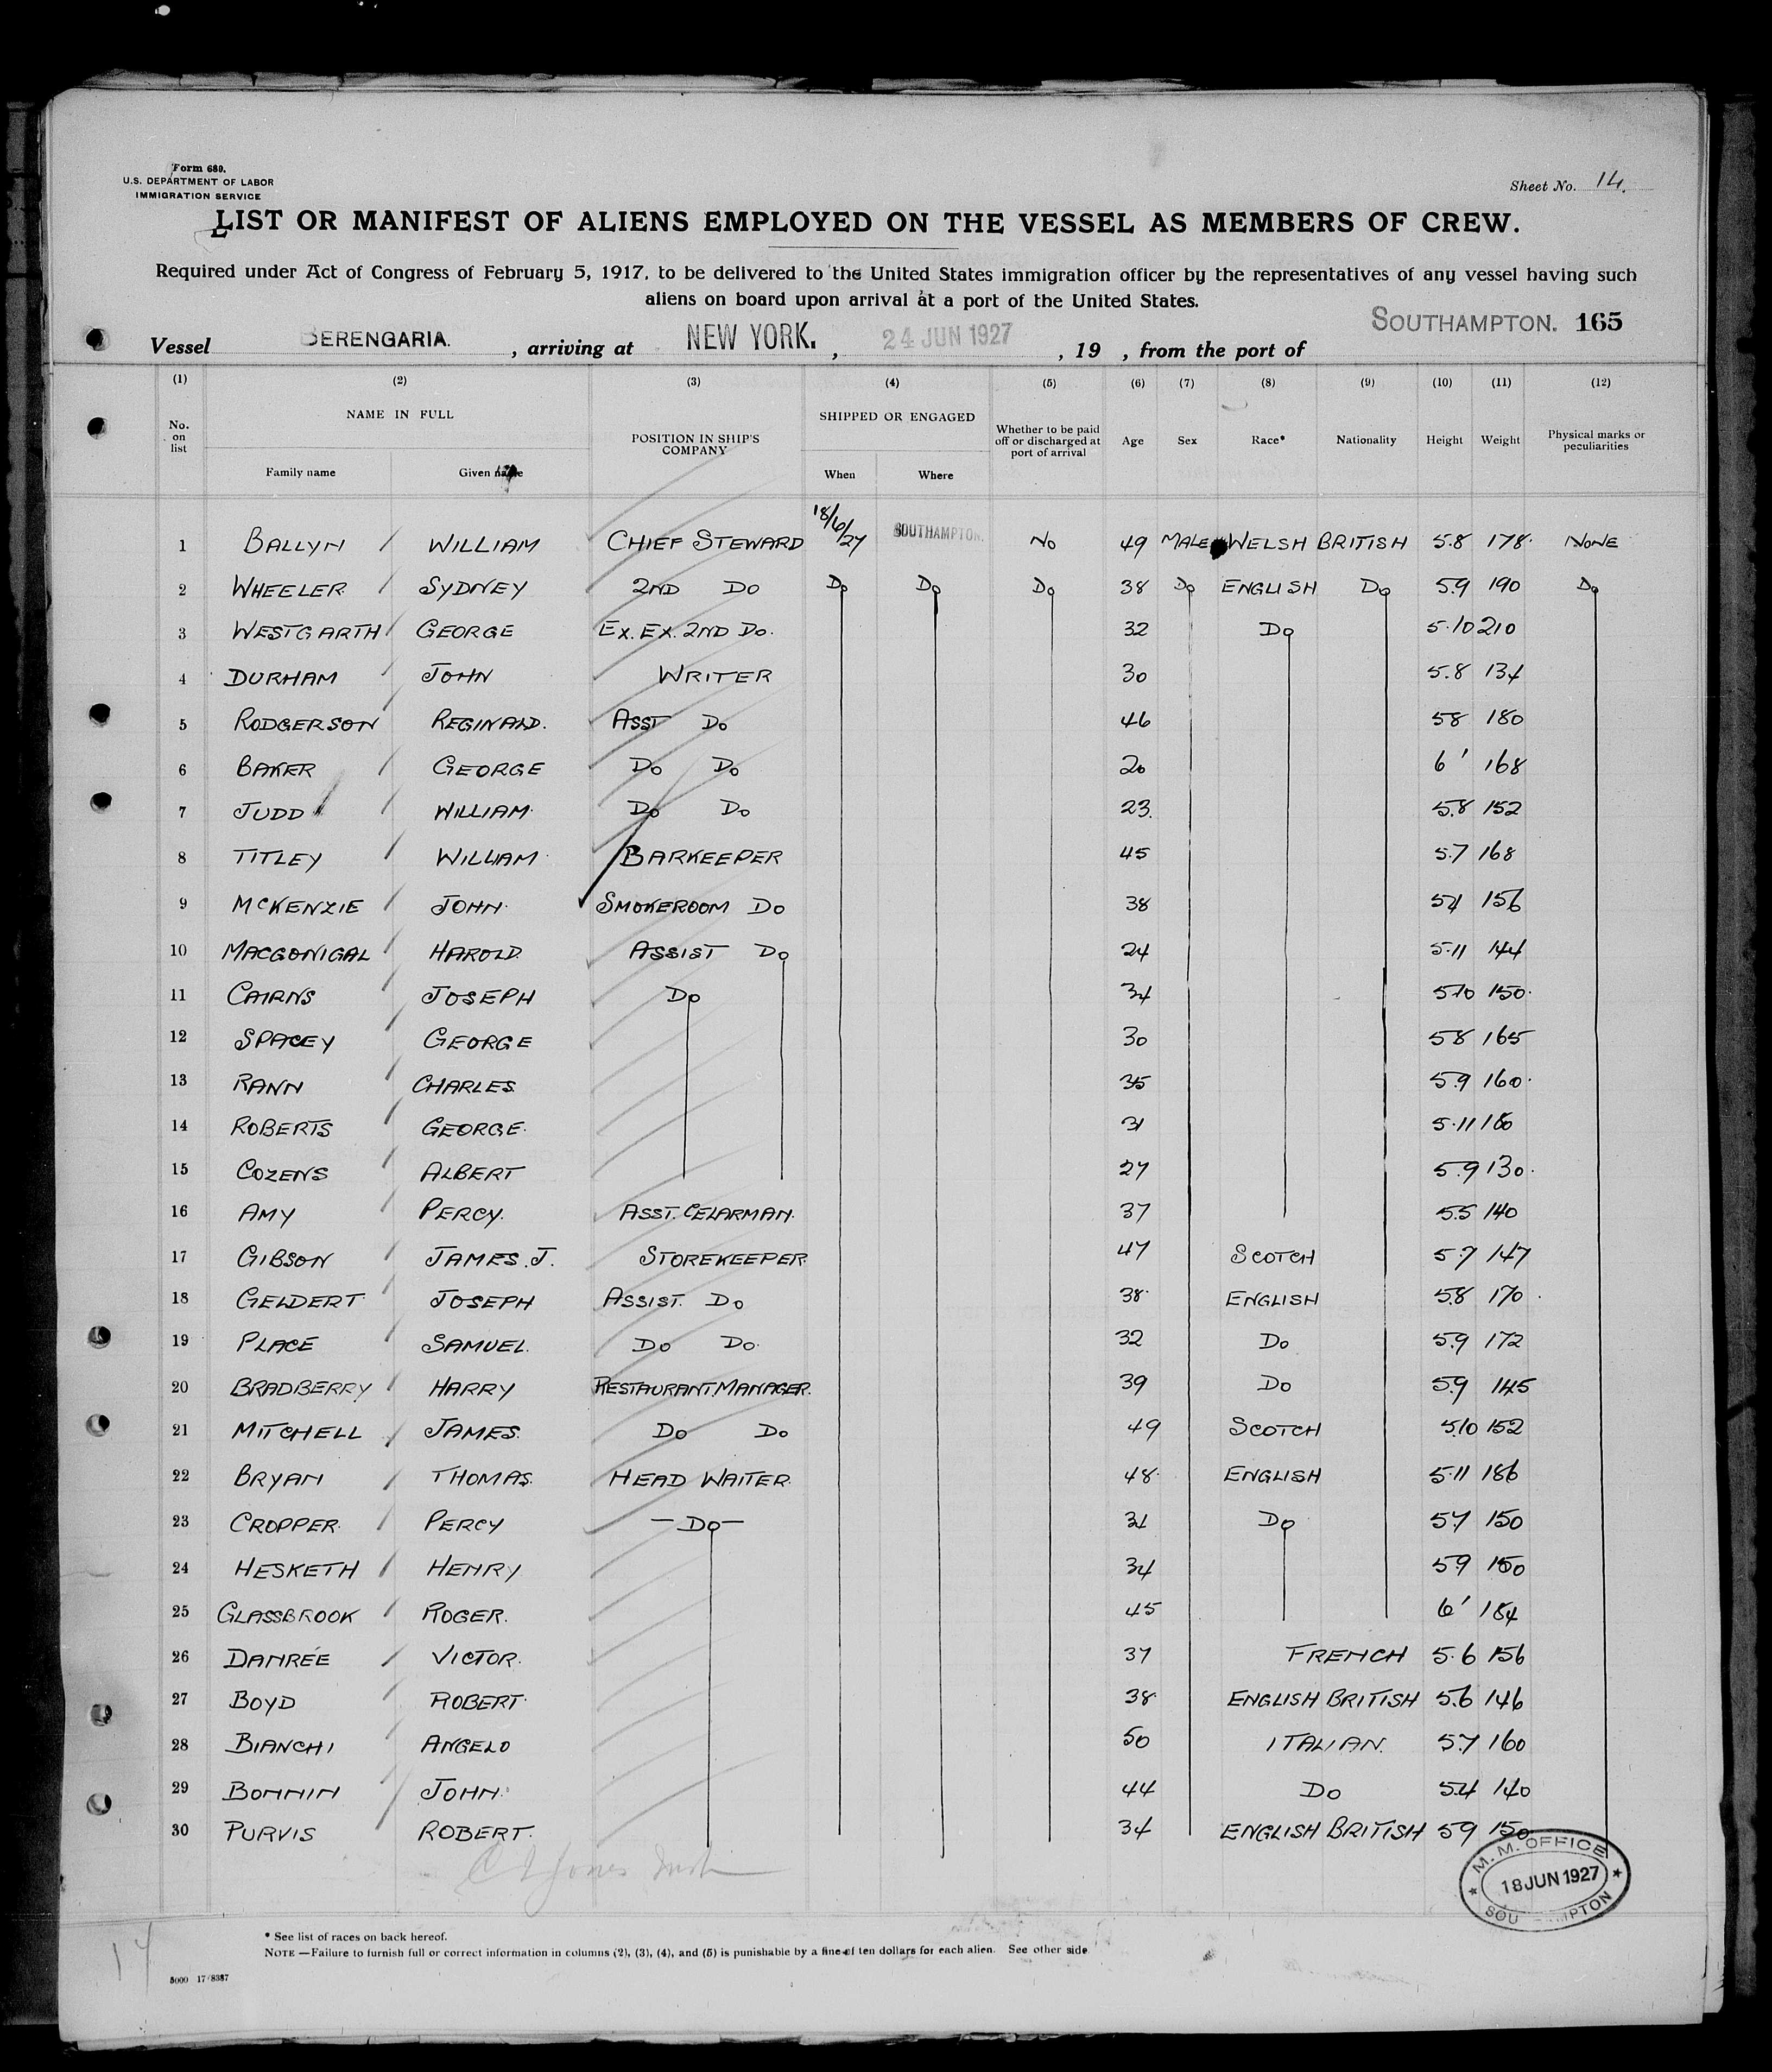 Form 680.
U.S. DEPARTMENT OF LABOR
IMMIGRATION SERVICE
Sheet No. 14.
LIST OR MANIFEST OF ALIENS EMPLOYED ON THE VESSEL AS MEMBERS OF CREW.
Required under Act of Congress of February 5, 1917, to be delivered to the United States immigration officer by the representatives of any vessel having such
aliens on board upon arrival at a port of the United States.
Vessel BERENGARIA. , arriving at NEW YORK. , 24 JUN 1927 , 19 , from the port of SOUTHAMPTON. 165
(1) (2) (3) (4) (5) (6) (7) (8) (9) (10) (11) (12)
No. on list NAME IN FULL Family name Given name POSITION IN SHIP'S COMPANY SHIPPED OR ENGAGED When Where Whether to be paid off or discharged at port of arrival Age Sex Race* Nationality Height Weight Physical marks or peculiarities
1 BALLYN WILLIAM CHIEF STEWARD 18/6/27 SOUTHAMPTON. NO 49 MALE WELSH BRITISH 5.8 178. NONE
2 WHEELER. SYDNEY 2ND DO DO DO DO 38 DO ENGLISH DO 5.9 190 DO
3 WESTGARTH GEORGE EX. EX. 2ND DO. 32 DO 5.10 210
4 DURHAM JOHN WRITER 30 5.8 134
5 RODGERSON REGINALD. ASST DO 46 58 180
6 BAKER GEORGE DO DO 20 6' 168
7 JUDD WILLIAM. DO DO 23. 5.8 152
8 TITLEY WILLIAM. BARKEEPER 45 5.7 168
9 MCKENZIE JOHN. SMOKEROOM DO 38 54 156
10 MACGONIGAL HAROLD. ASSIST DO 24 5.11 144
11 CAIRNS JOSEPH DO 34 5.10 150.
12 SPACEY GEORGE 30 58 165
13 RANN CHARLES. 35 5.9 160.
14 ROBERTS GEORGE. 31 5.11 180
15 COZENS ALBERT 27 5.9 130.
16 AMY PERCY. ASST. CELARMAN. 37 5.5 140
17 GIBSON JAMES. J. STOREKEEPER. 47 SCOTCH 5.7 147
18 GELDERT JOSEPH ASSIST. DO 38. ENGLISH 5.8 170.
19 PLACE SAMUEL. DO DO. 32 DO 5.9 172
20 BRADBERRY HARRY RESTAURANT. MANAGER. 39 DO 5.9 145
21 MITCHELL JAMES. DO DO 49 SCOTCH 5.10 152
22 BRYAN THOMAS. HEAD WAITER. 48. ENGLISH 5.11 186
23 CROPPER. PERCY -DO- 31 DO 5.7 150
24 HESKETH HENRY 34 59 150
25 GLASSBROOK ROGER. 45 6' 184
26 DANRÉE VICTOR. 37 FRENCH 5.6 156
27 BOYD ROBERT. 38. ENGLISH BRITISH 5.6 146
28 BIANCHI ANGELO 50 ITALIAN. 5.7 160
29 BONNIN JOHN. 44 DO 5.4 140
30 PURVIS ROBERT. 34 ENGLISH BRITISH 59 150
M. M. OFFICE
18 JUN 1927
* See list of races on back hereof.
NOTE —Failure to furnish full or correct information in columns (2), (3), (4), and (5) is punishable by a fine of ten dollars for each alien. See other side.
14
5000 17/8387